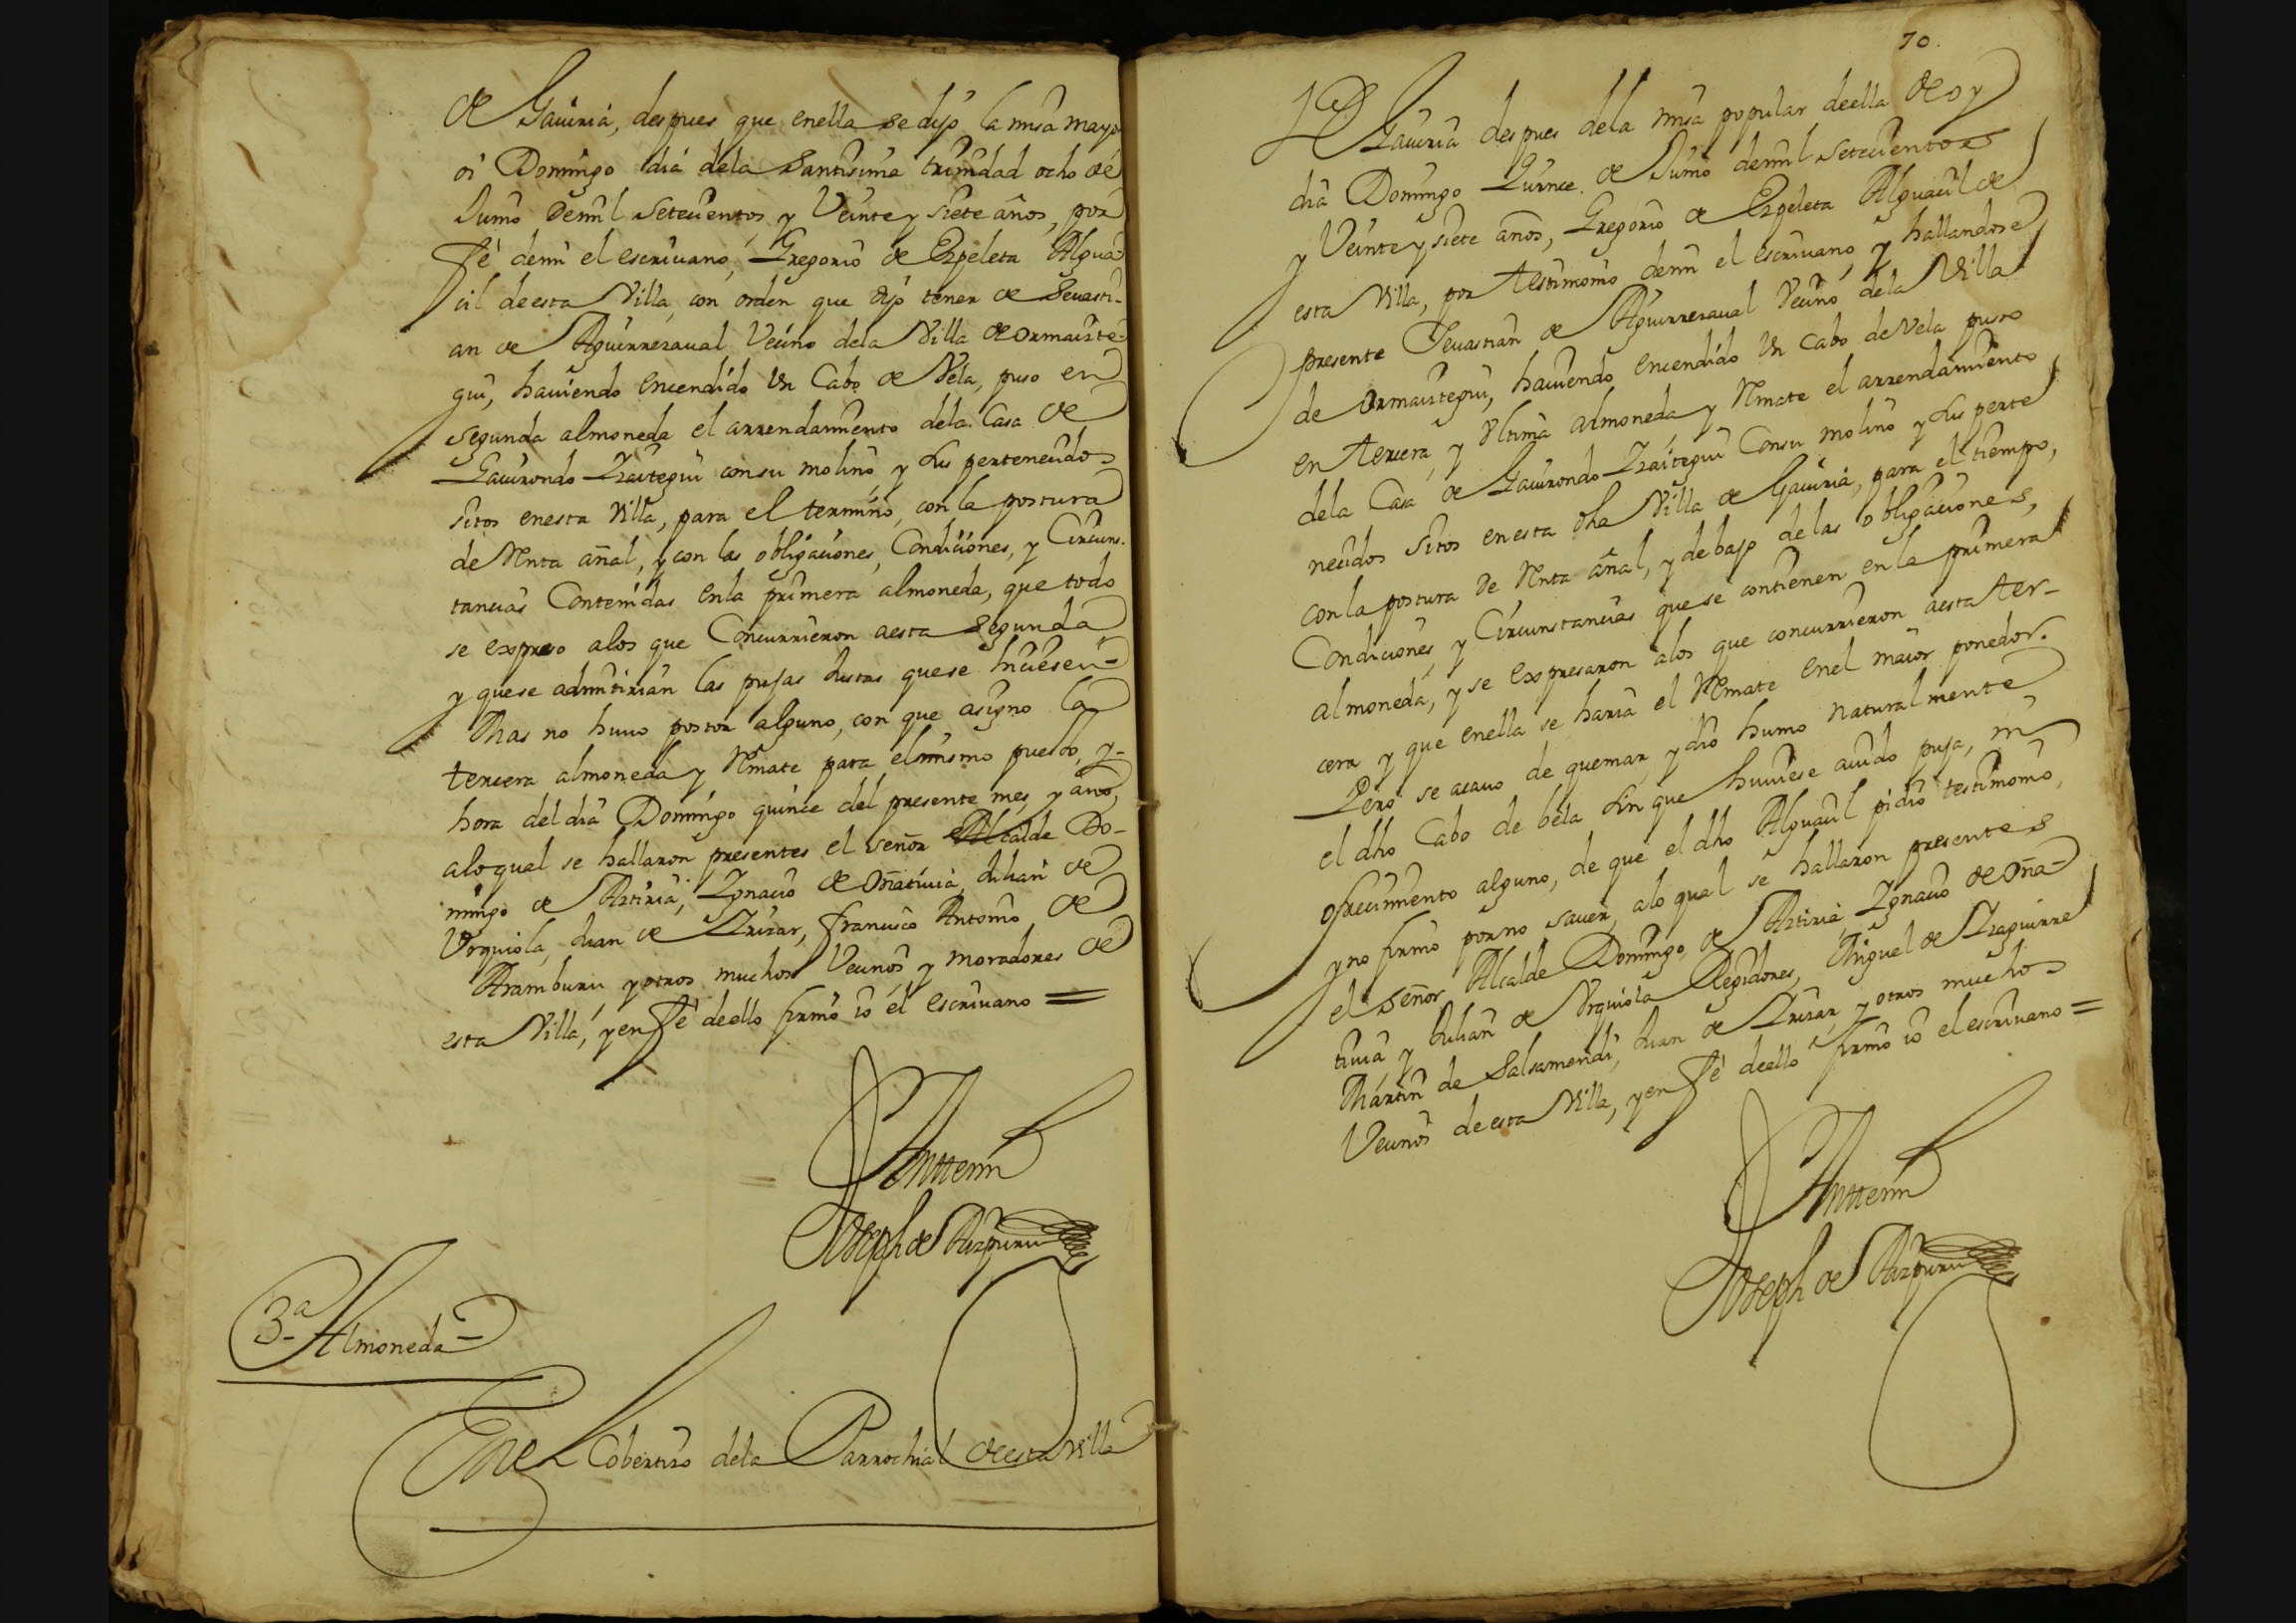 de Gaviria, despues que enella se dijo la misa mayor
oi Domingo dia dela Santisima trinidad ocho de
Junio demil Setecientos, y Veinte y siete años, por
fè demi el escrivano, Gregorio de Ezpeleta Algua-
cil de esta Villa, con orden que dijo tener de Sevasti-
an de Aguirrezaval Vecino dela Villa de ormaizte-
gui, haviendo encendido Vn Cabo de Vela, puso en
segunda almoneda el arrendamiento dela Casa de
Gavirondo Izaitegui con su molino, y sus pertenecidos
sitos enesta Villa, para el termino, con la postura
de Renta añal, y con las obligaciones, Condiciones, y Circuns-
tancias Contenidas enla primera almoneda, que todo
se expreso alos que Concurrieron aesta segunda
y que se admitirian las pujas Justas que se hiciesen
Mas no huvo postor alguno, con que asigno la
tercera almoneda y Remate para el mismo puesto, y
hora del dia Domingo quince del presente mes, y año,
alo qual se hallaron presentes el señor Alcalde Do-
mingo de Aztiria, Ignacio de Oñativia, Julian de
Urquiola, Juan de Irizar, francisco Antonio de
Aramburu y otros muchos Vecinos y moradores de
esta Villa, y en fè de ello firmo io el escrivano =
Antte mi
Joseph de Aizpuru
3.a Almoneda
En el Cobertizo dela Parrochial de esta Villa
70.
De Gaviria despues dela misa popular de ella de oy
dia Domingo Quince de Junio demil Setecientos
y Veinte y siete años, Gregorio de Ezpeleta Alguacil de
esta Villa, por testimonio demi el escrivano, y hallandose
presente Sevastian de Aguirrezaval Vecino dela Villa
de Ormaiztegui, haviendo encendido Vn Cabo de Vela puso
en tercera, y Vltima almoneda y Remate el arrendamiento
dela Casa de Gavirondo Izaitegui Consu molino y sus perte
necidos Sitos en esta dha Villa de Gaviria, para el tiempo,
con la postura de Renta añal, y debajo de las obligaciones,
Condiciones, y Circunstancias que se contienen en la primera
almoneda, y se expresaron alos que concurrieron aesta ter-
cera y que enella se haria el Remate enel maior ponedor.
Pero se acavo de quemar, y dio humo naturalmente
el dho Cabo de bela sin que huviese avido puja, ni
ofrecimiento alguno, de que el dho Alguacil pidio testimonio,
y no firmo por no saver, alo qual se hallaron presentes
el señor Alcalde Domingo de Aztiria, Ignacio de Oña-
tivia, y Julian de Vrquiola Regidores, Miguel de Izaguirre
Martin de Salsamendi, Juan de Irizar, y otros muchos
Vecinos de esta Villa, y en fè de ello firmo io el escrivano =
Antte mi
Joseph de Aizpuru